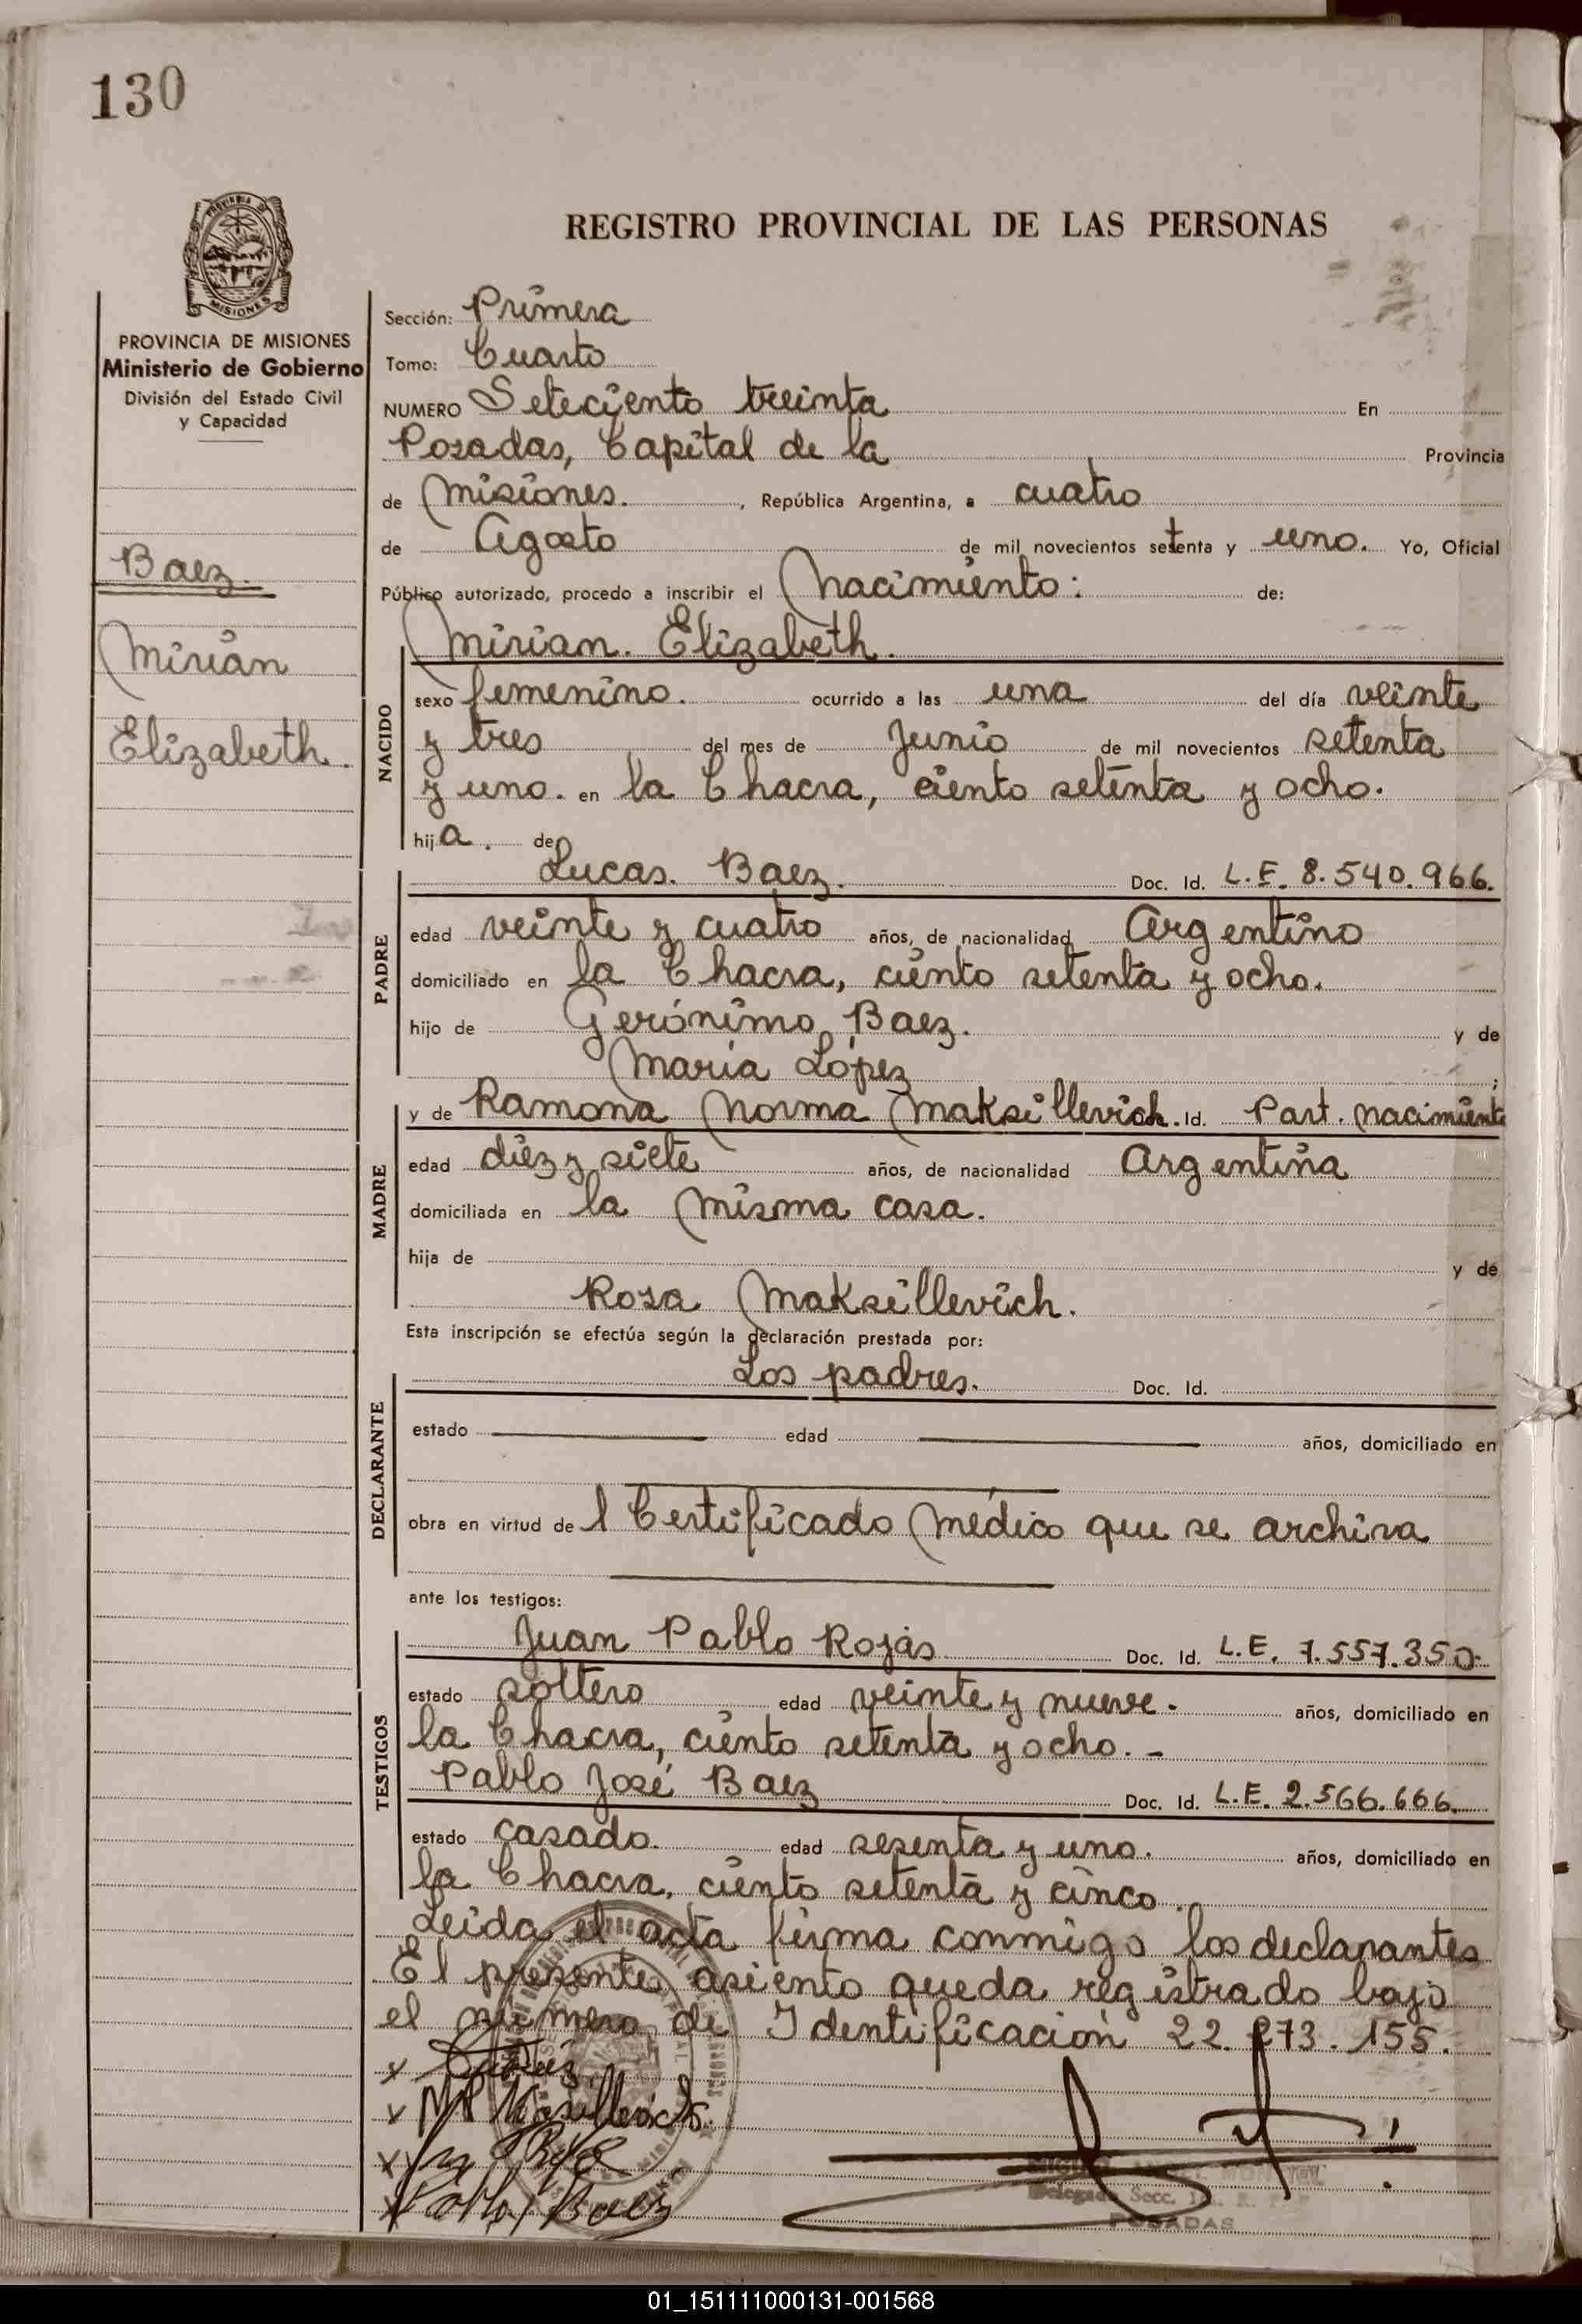 130
REGISTRO PROVINCIAL DE LAS PERSONAS
PROVINCIA DE MISIONES
Ministerio de Gobierno
División del Estado Civil
y Capacidad
Baez.
Mirian
Elizabeth.
Sección: Primera
Tomo: Cuarto
NUMERO Seteciento treinta En
Posadas, Capital de la Provincia
de Misiones. , República Argentina, a cuatro
de Agosto de mil novecientos setenta y uno. Yo, Oficial
Público autorizado, procedo a inscribir el Nacimiento: de:
Mirian. Elizabeth.
NACIDO
sexo femenino. ocurrido a las una del día veinte
y tres del mes de Junio de mil novecientos setenta
y uno. en la Chacra, ciento setenta y ocho.
hija. de
PADRE
Lucas. Baez. Doc. Id. L.E. 8.540.966.
edad veinte y cuatro años, de nacionalidad Argentino
domiciliado en la Chacra, ciento setenta y ocho.
hijo de Gerónimo Baez. y de
María López ;
MADRE
y de Ramona Norma Maksillevich. Id. Part. nacimiento
edad diez y siete años, de nacionalidad Argentina
domiciliada en la misma casa.
hija de y de
Rosa Maksillevich.
Esta inscripción se efectúa según la declaración prestada por:
DECLARANTE
Los padres. Doc. Id.
estado edad años, domiciliado en
obra en virtud del Certificado Médico que se archiva
ante los testigos:
TESTIGOS
Juan Pablo Rojas Doc. Id. L.E. 7.557.350.
estado soltero edad veinte y nueve. años, domiciliado en
la Chacra, ciento setenta y ocho. -
Pablo José Baez Doc. Id. L.E. 2.566.666.
estado casado. edad sesenta y uno. años, domiciliado en
la Chacra, ciento setenta y cinco.
Leida el acta firma conmigo los declarantes
El presente asiento queda registrado bajo
el número de Identificación 22.273.155.
Pablo J Baez
POSADAS
01_151111000131-001568